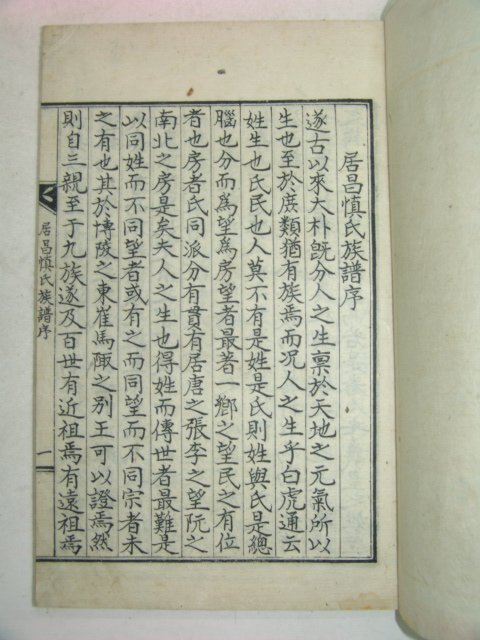 居昌慎氏族譜序
邃古以來大朴旣分人之生稟於天地之元氣所以
生也至於庶類猶有族焉而况人之生乎白虎通云
姓生也氏民也人莫不有是姓是氏則姓與氏是總
腦也分而爲望爲房望者最著一鄉之望民之有位
者也房者氏同派分有貫有居唐之張李之望阮之
南北之房是矣夫人之生也得姓而傳世者最難是
以同姓而不同望者或有之而同望而不同宗者未
之有也其於博陵之東崔馬陬之别王可以證焉然
則自三親至于九族遂及百世有近祖焉有遠祖焉
居昌慎氏族譜序
一